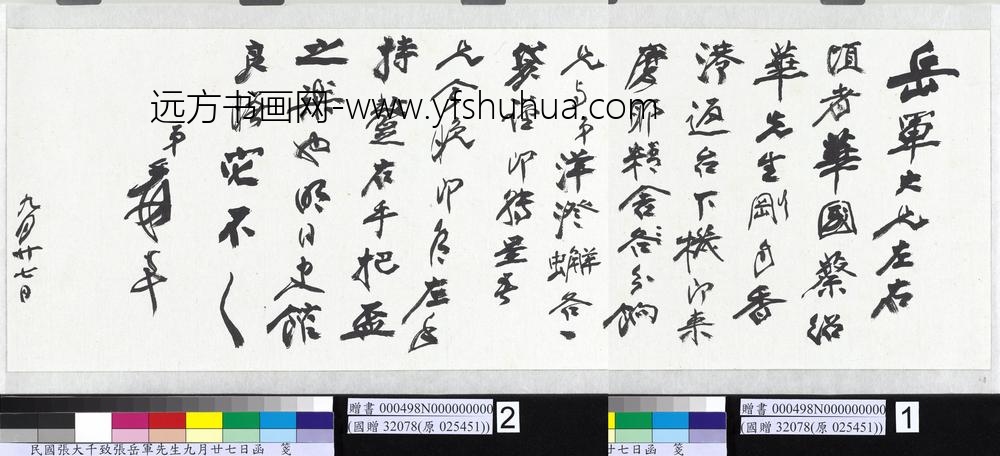 岳軍大兄左右
頃者華國蔡紹
華先生剛自香
港返台下機即來
摩耶精舍
兄與弟洋澄蟹各一
袋僅即轉呈吾
兄今晚即可左手
持螯右手把盃
之也明日史館
良不
弟爰
九月廿七日
远方书画网-www.yfshuhua.com
贈書 000498N000000000
(國贈 32078(原 025451))
2
贈書 000498N000000000
(國贈 32078(原 025451))
1
民國張大千致張岳軍先生九月廿七日函 箋
廿七日函 箋